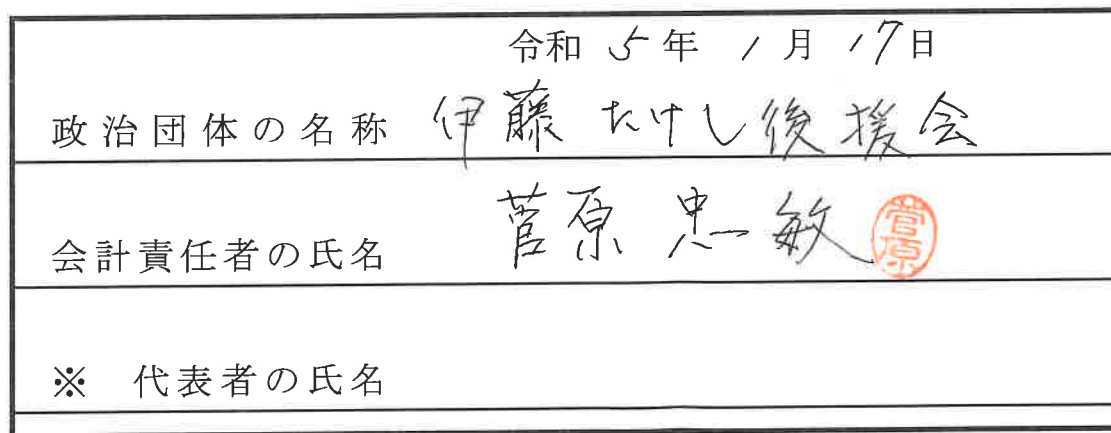 令和 5 年 1 月 17日
政治団体の名称 伊藤たけし後援会
会計責任者の氏名 菅原忠敏 菅原
※ 代表者の氏名